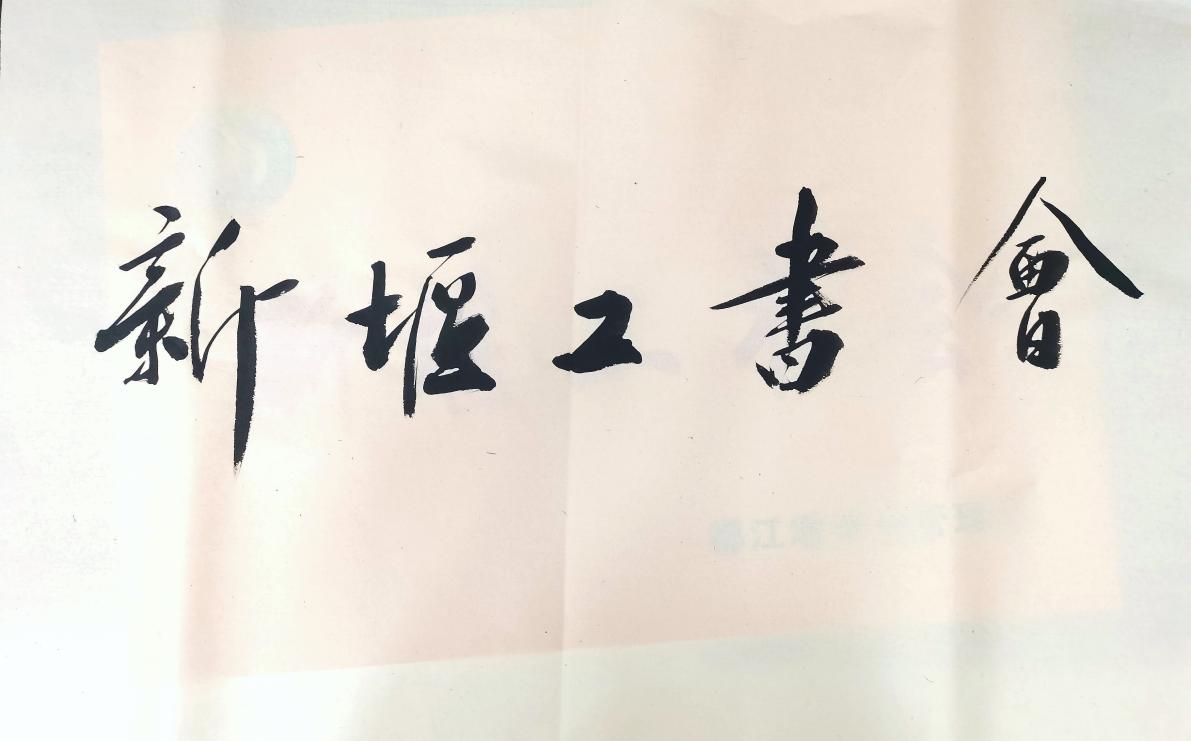 新堰工書會